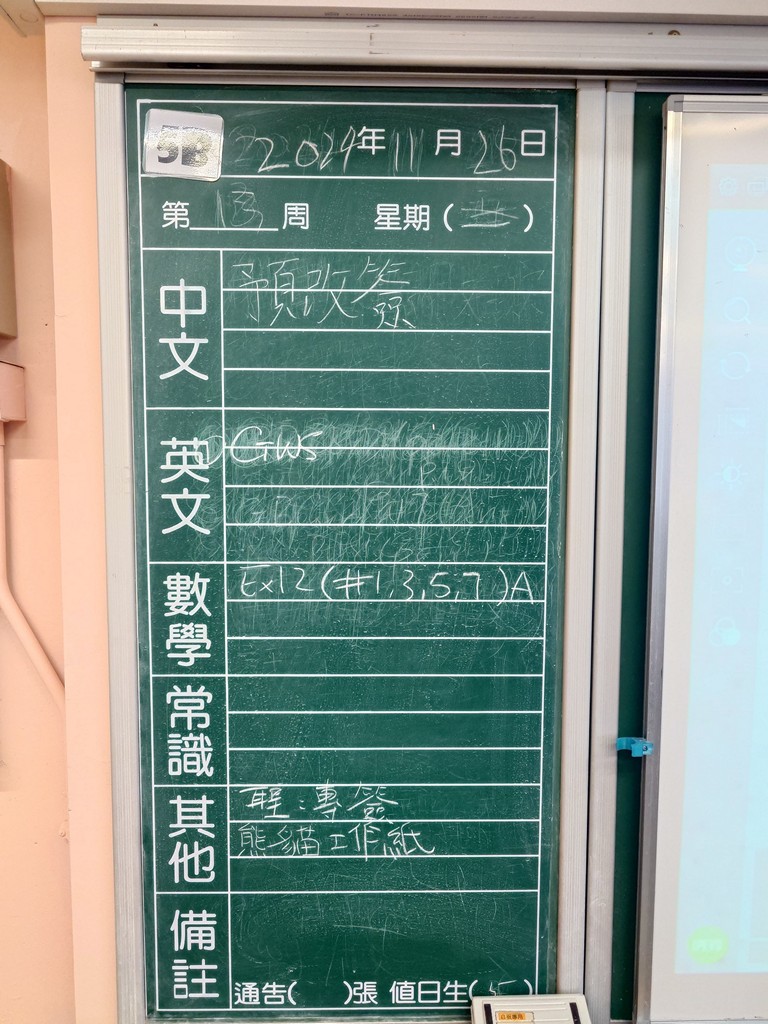 5B 2024年11月26日
第13周 星期( )
中文
預改簽
英文
GWS
數學
Ex12(#1,3,5,7)A
常識
其他
聖:專簽
熊貓工作紙
備註
通告( )張 值日生( )